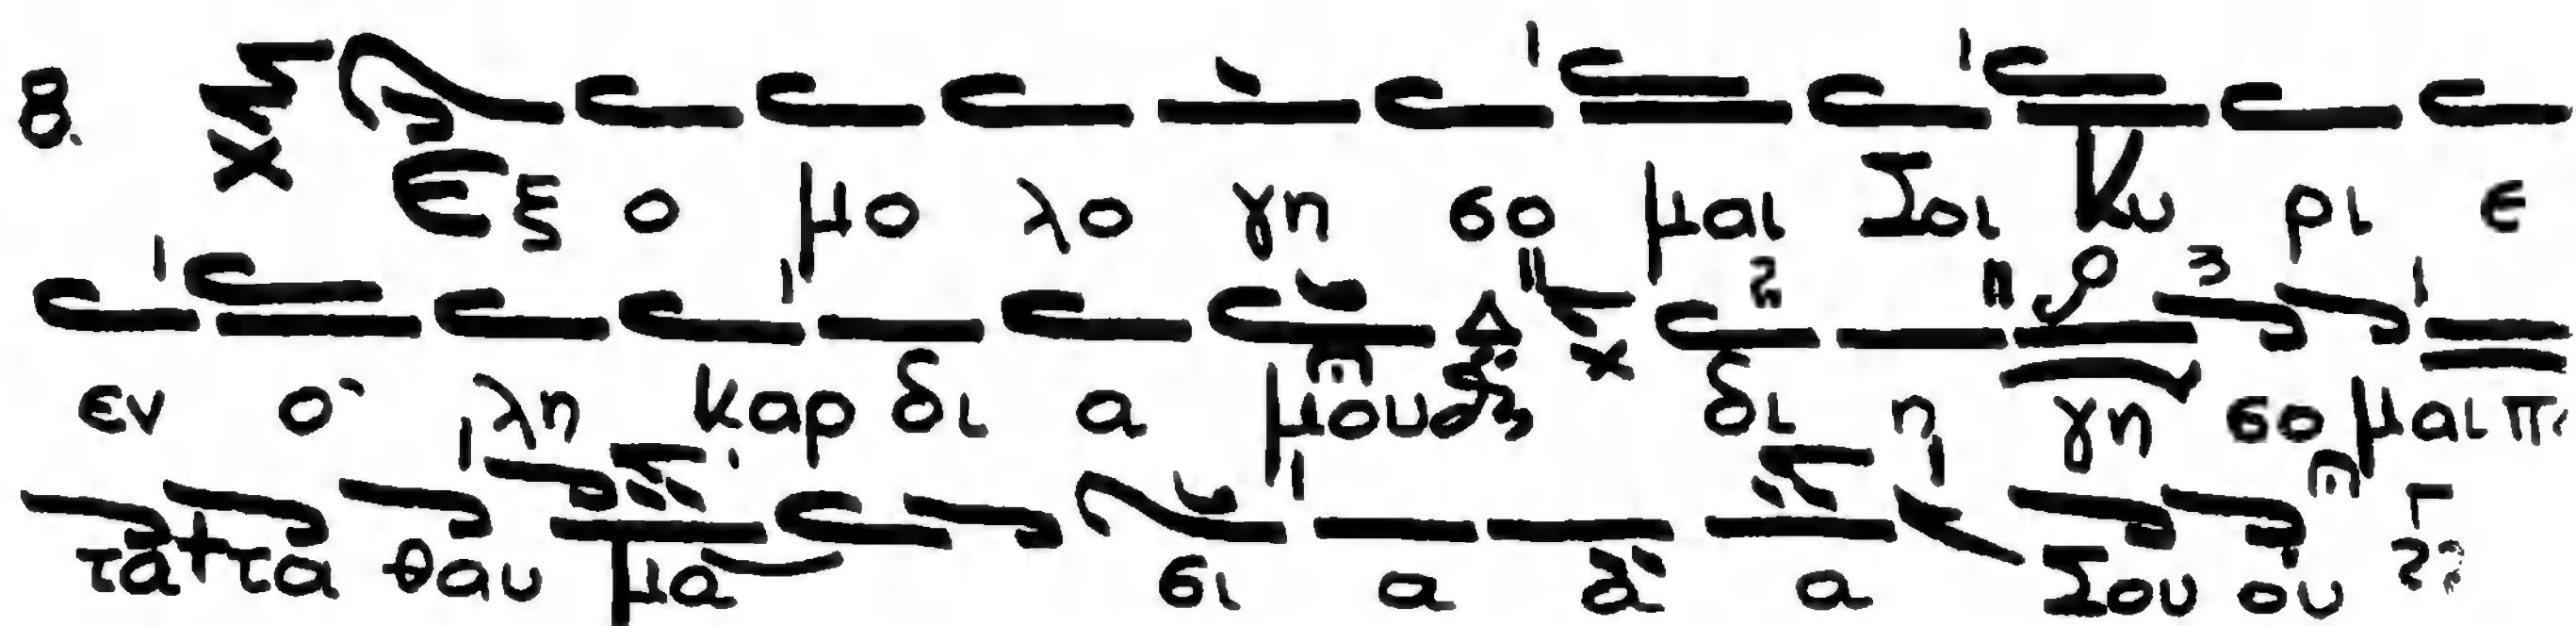 8. Εξ ο μο λο γη σο μαι Σοι Κυ ρι ε
εν ο λη καρ δι α μου δι η γη σο μαι π
τα τα θαυ μα σι α α α Σου ου